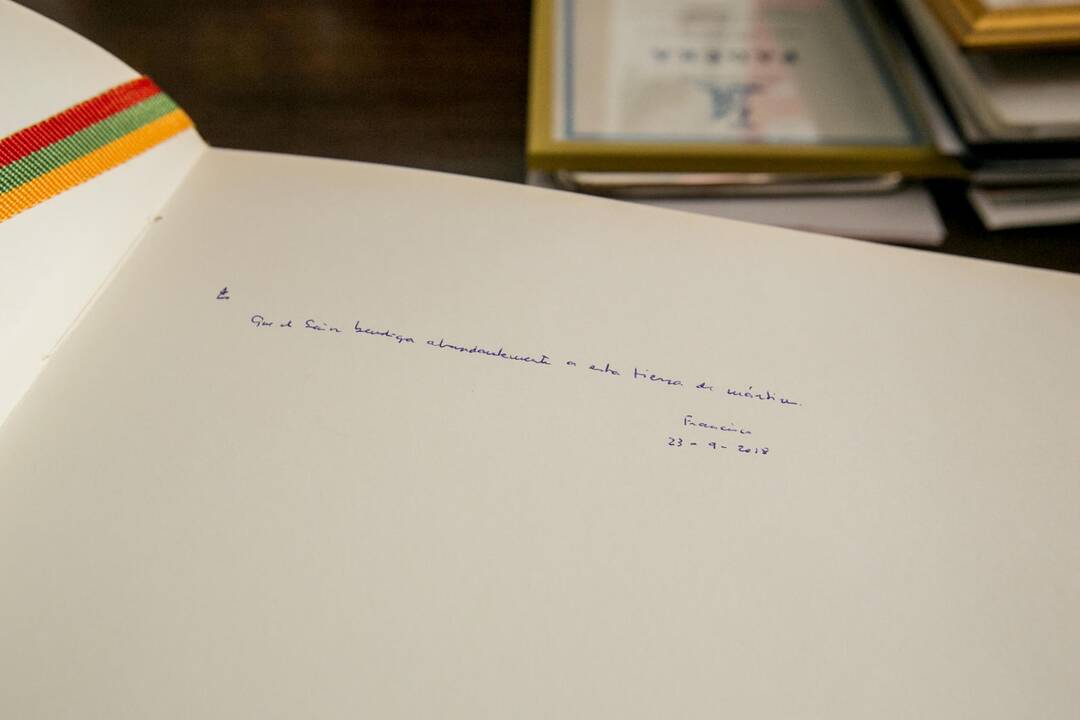 Que el Señor bendiga abundantemente a esta tierra de mártires.
Francisco
23 - 9 - 2018